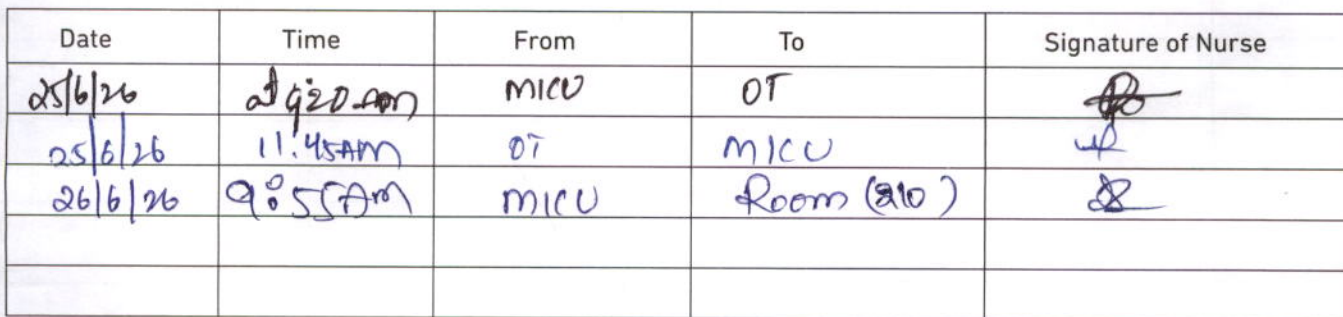 Date Time From To Signature of Nurse
25/6/26 at 9:20 Am MICU OT
25/6/26 11:45AM OT MICU
26/6/26 9:55Am MICU Room (210)